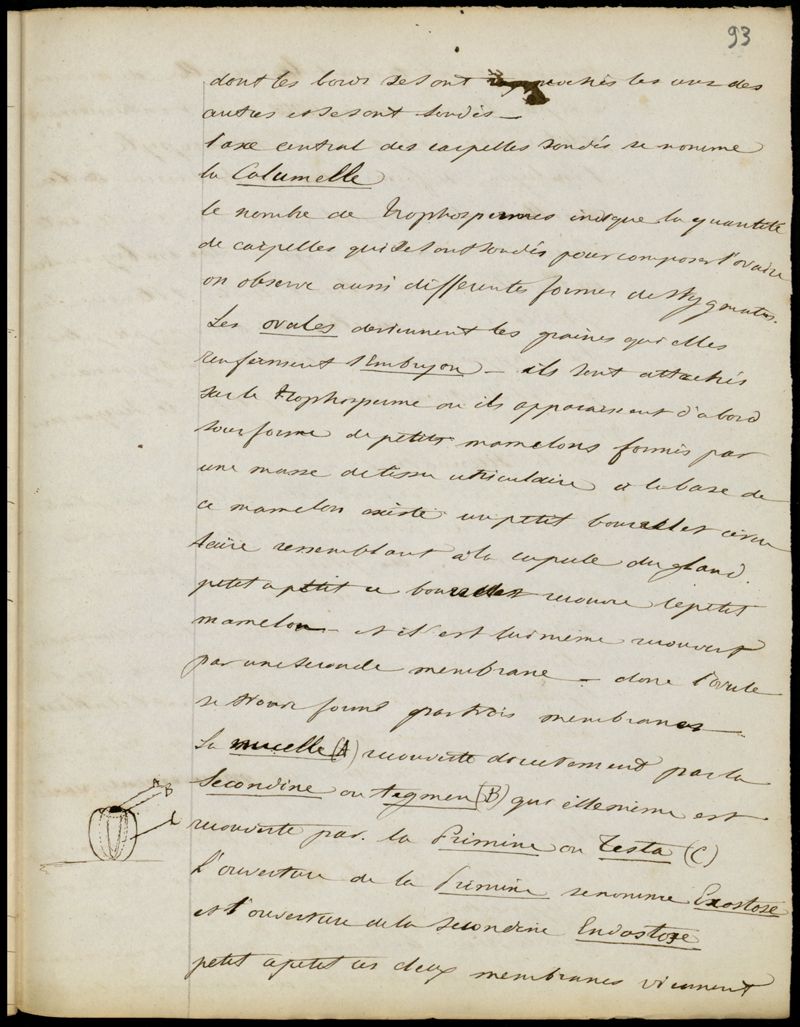 93
dont les bords se sont rapprochés les uns des
autres et se sont soudés —
l'axe central des carpelles soudés se nomme
la Columelle
le nombre de trophospermes indique la quantité
de carpelles qui se sont soudés pour composer l'ovaire
on observe aussi differentes formes de stygmates.
Les ovules deviennent les graines qui elles
renferment l'Embryon — ils sont attachés
sur le trophosperme ou ils apparaissent d'abord
sous forme de petits mamelons formés par
une masse de tissu utriculaire a la base de
ce mamelon existe un petit bourrelet circu
laire ressemblant à la cupule du gland.
petit a petit ce bourrelet recouvre le petit
mamelon — et il est lui même recouvert
par une seconde membrane — donc l'ovule
se trouve formé par trois membranes
La nucelle (A) recouverte directement par la
Secondine ou tegmen (B) qui elle même est
recouverte par la Primine ou Testa (C)
A
B
C
L'ouverture de la Primine se nomme Exostose
et l'ouverture de la secondine Endostose
petit a petit ces deux membranes viennent